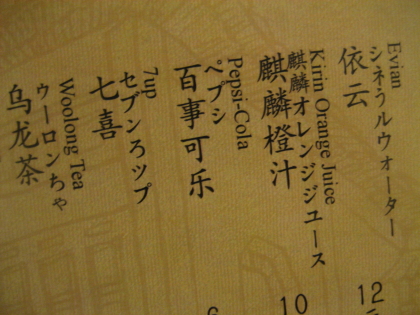 Evian
シネうルウォーター
依云
12
Kirin Orange Juice
麒麟オレンジジユース
麒麟橙汁
10
Pepsi-Cola
ペプシ
百事可乐
7up
セブンろップ
七喜
Woolong Tea
ゥーロンちゃ
乌龙茶